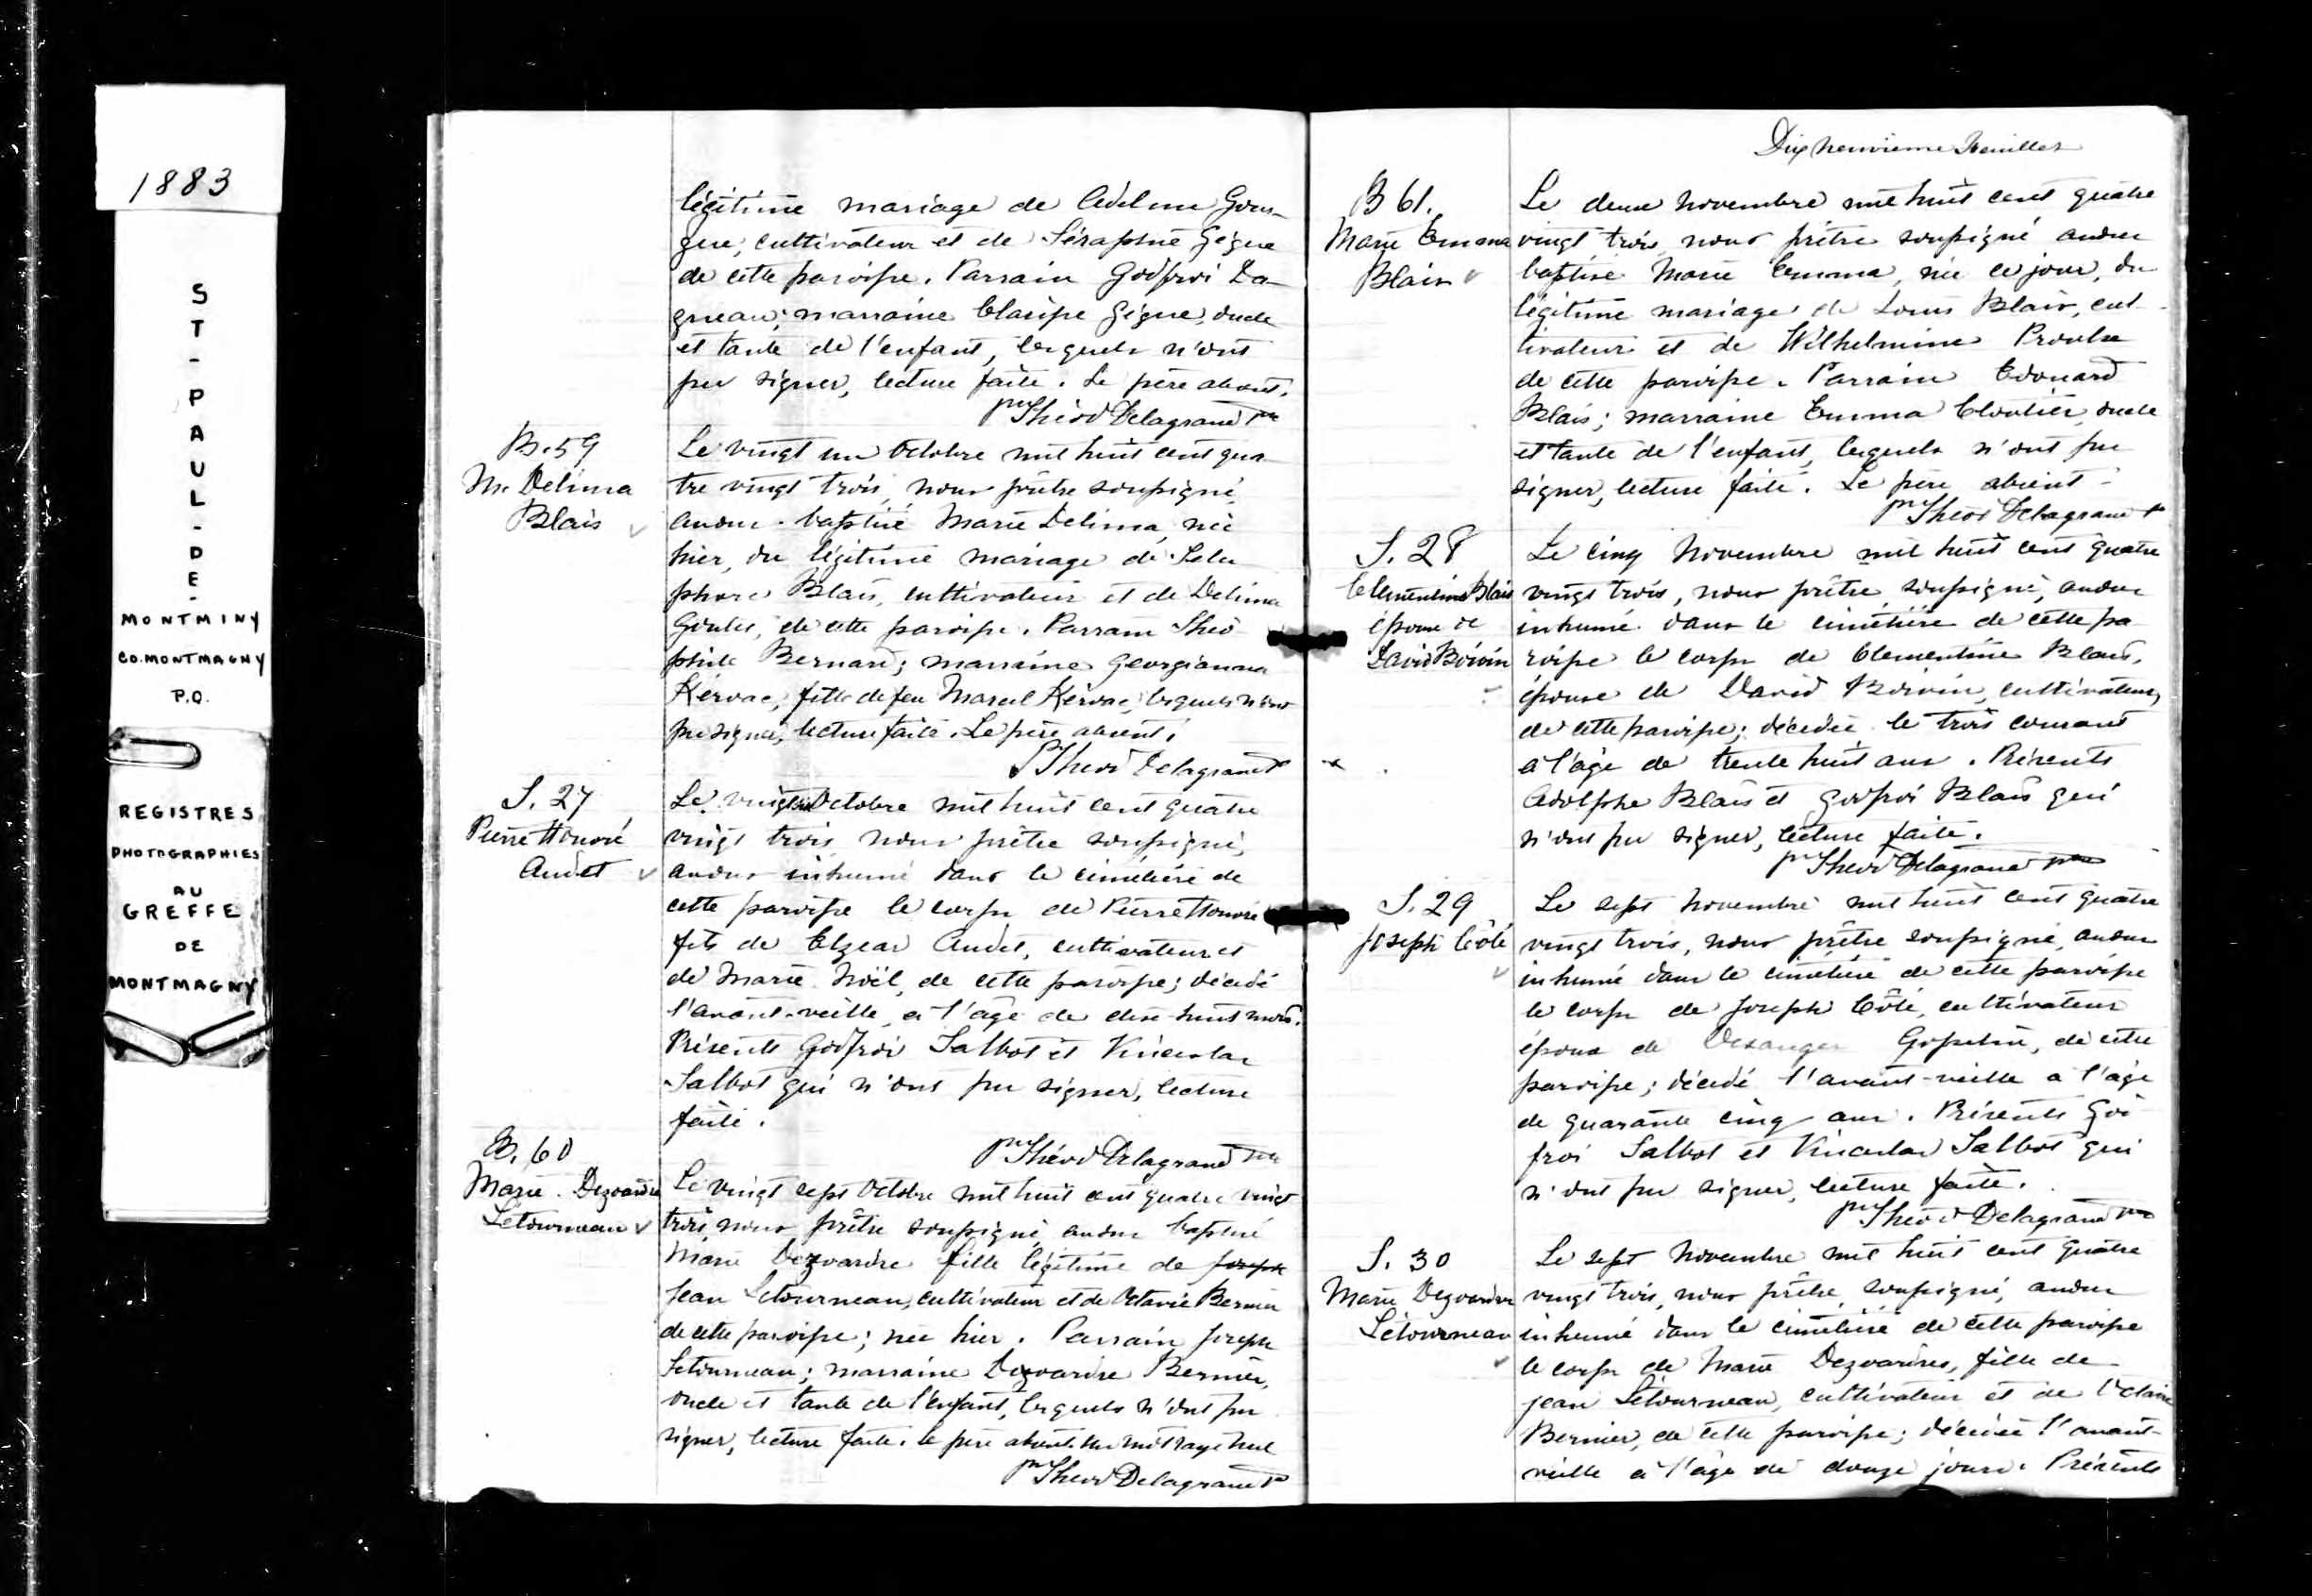 1883
ST-PAUL-DE-
MONTMINY
CO. MONTMAGNY
P.Q.
REGISTRES
PHOTOGRAPHIES
AU
GREFFE
DE
MONTMAGNY
légitime mariage de Adelme Gour-
gue, cultivateur et de Séraphie Gégue
de cette paroisse. Parrain Godfroi Da-
gneau; marraine Clarisse Gégue, oncle
et tante de l'enfant, lesquels n'ont
pu signer, lecture faite. Le père absent.
Théod Delagrave ptre
B. 59
M. Delima
Blais
Le vingt un Octobre mil huit cent qua-
tre vingt trois, nous prêtre soussigné,
avons baptisé Marie Delima, née
hier, du légitime mariage de Téles-
phore Blais, cultivateur et de Delima
Goulet, de cette paroisse. Parrain Théo-
phile Bernard; marraine Georgianna
Kérvac, fille de feu Marcel Kérvac, lesquels n'ont
pu signer, lecture faite. Le père absent.
Théod Delagrave ptre
S. 27
Pierre Honoré
Audet
Le Octobre mil huit cent quatre
vingt trois nous prêtre soussigné,
avons inhumé dans le cimetière de
cette paroisse le corps de Pierre Honoré
fils de Elzear Audet, cultivateur et
de Marie Noël, de cette paroisse; décédé
l'avant-veille, à l'âge de dix-huit mois.
Présents Godfroi Talbot et Vinceslas
Talbot qui n'ont pu signer, lecture
faite.
Théod Delagrave ptre
B. 60
Marie Dezvardre
Letourneau
Le vingt sept Octobre mil huit cent quatre vingt
trois, nous prêtre soussigné, avons baptisé
Marie Dezvardre fille légitime de Joseph
Jean Letourneau, cultivateur et de Octavie Bernier
de cette paroisse; née hier. Parrain Joseph
Letourneau; marraine Dezvardre Bernier,
oncle et tante de l'enfant, lesquels n'ont pu
signer, lecture faite. Le père absent. Un mot rayé nul
Théod Delagrave ptre
Dix neuvième Feuillet
B 61.
Marie Emma
Blais
Le deux Novembre mil huit cent quatre
vingt trois, nous prêtre soussigné avons
baptisé Marie Emma, née ce jour, du
légitime mariage de Louis Blais, cul-
tivateur et de Wilhelmine Proulx
de cette paroisse. Parrain Edouard
Blais; marraine Emma Cloutier, oncle
et tante de l'enfant, lesquels n'ont pu
signer, lecture faite. Le père absent -
Théod Delagrave ptre
S. 28
Clementine Blais
épouse de
David Boivin
Le cinq Novembre mil huit cent quatre
vingt trois, nous prêtre soussigné, avons
inhumé dans le cimetière de cette pa-
roisse le corps de Clementine Blais,
épouse de David Boivin, cultivateur,
de cette paroisse; décédée le trois courant
à l'âge de trente huit ans. Présents
Adolphe Blais et Godfroi Blais qui
n'ont pu signer, lecture faite.
Théod Delagrave ptre
S. 29
Joseph Côté
Le sept Novembre mil huit cent quatre
vingt trois, nous prêtre soussigné, avons
inhumé dans le cimetière de cette paroisse
le corps de Joseph Côté, cultivateur
époux de Desanges Gosselin, de cette
paroisse; décédé l'avant-veille à l'âge
de quarante cinq ans. Présents God-
froi Talbot et Vinceslas Talbot qui
n'ont pu signer, lecture faite.
Théod Delagrave ptre
S. 30
Marie Dezvardre
Létourneau
Le sept Novembre mil huit cent quatre
vingt trois, nous prêtre soussigné, avons
inhumé dans le cimetière de cette paroisse
le corps de Marie Dezvardres, fille de
jean Létourneau, cultivateur et de Octavie
Bernier, de cette paroisse; décédée l'avant-
veille à l'âge de douze jours. Présents